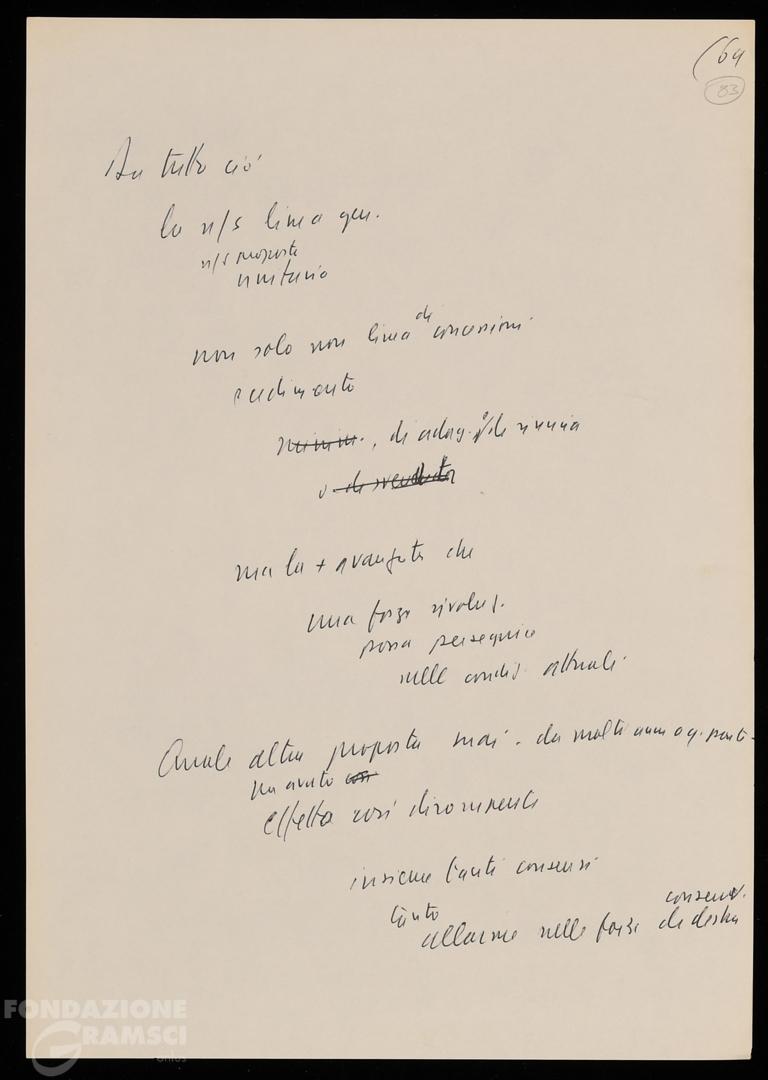 (64
83
In tutto ciò
la n/s linea gen.
n/s proposta
unitaria
non solo non linea di concessioni
cedimento
di adag. o di rinuncia
o
ma la + avanzata che
una forza rivoluz.
possa perseguire
nelle condiz. attuali
Quale altra proposta mai - da molti anni a q. parte -
ha avuto così
effetto così dirompente
insieme tanti consensi
tanto
conserv.
allarme nelle forze di destra
FONDAZIONE
GRAMSCI
onlus